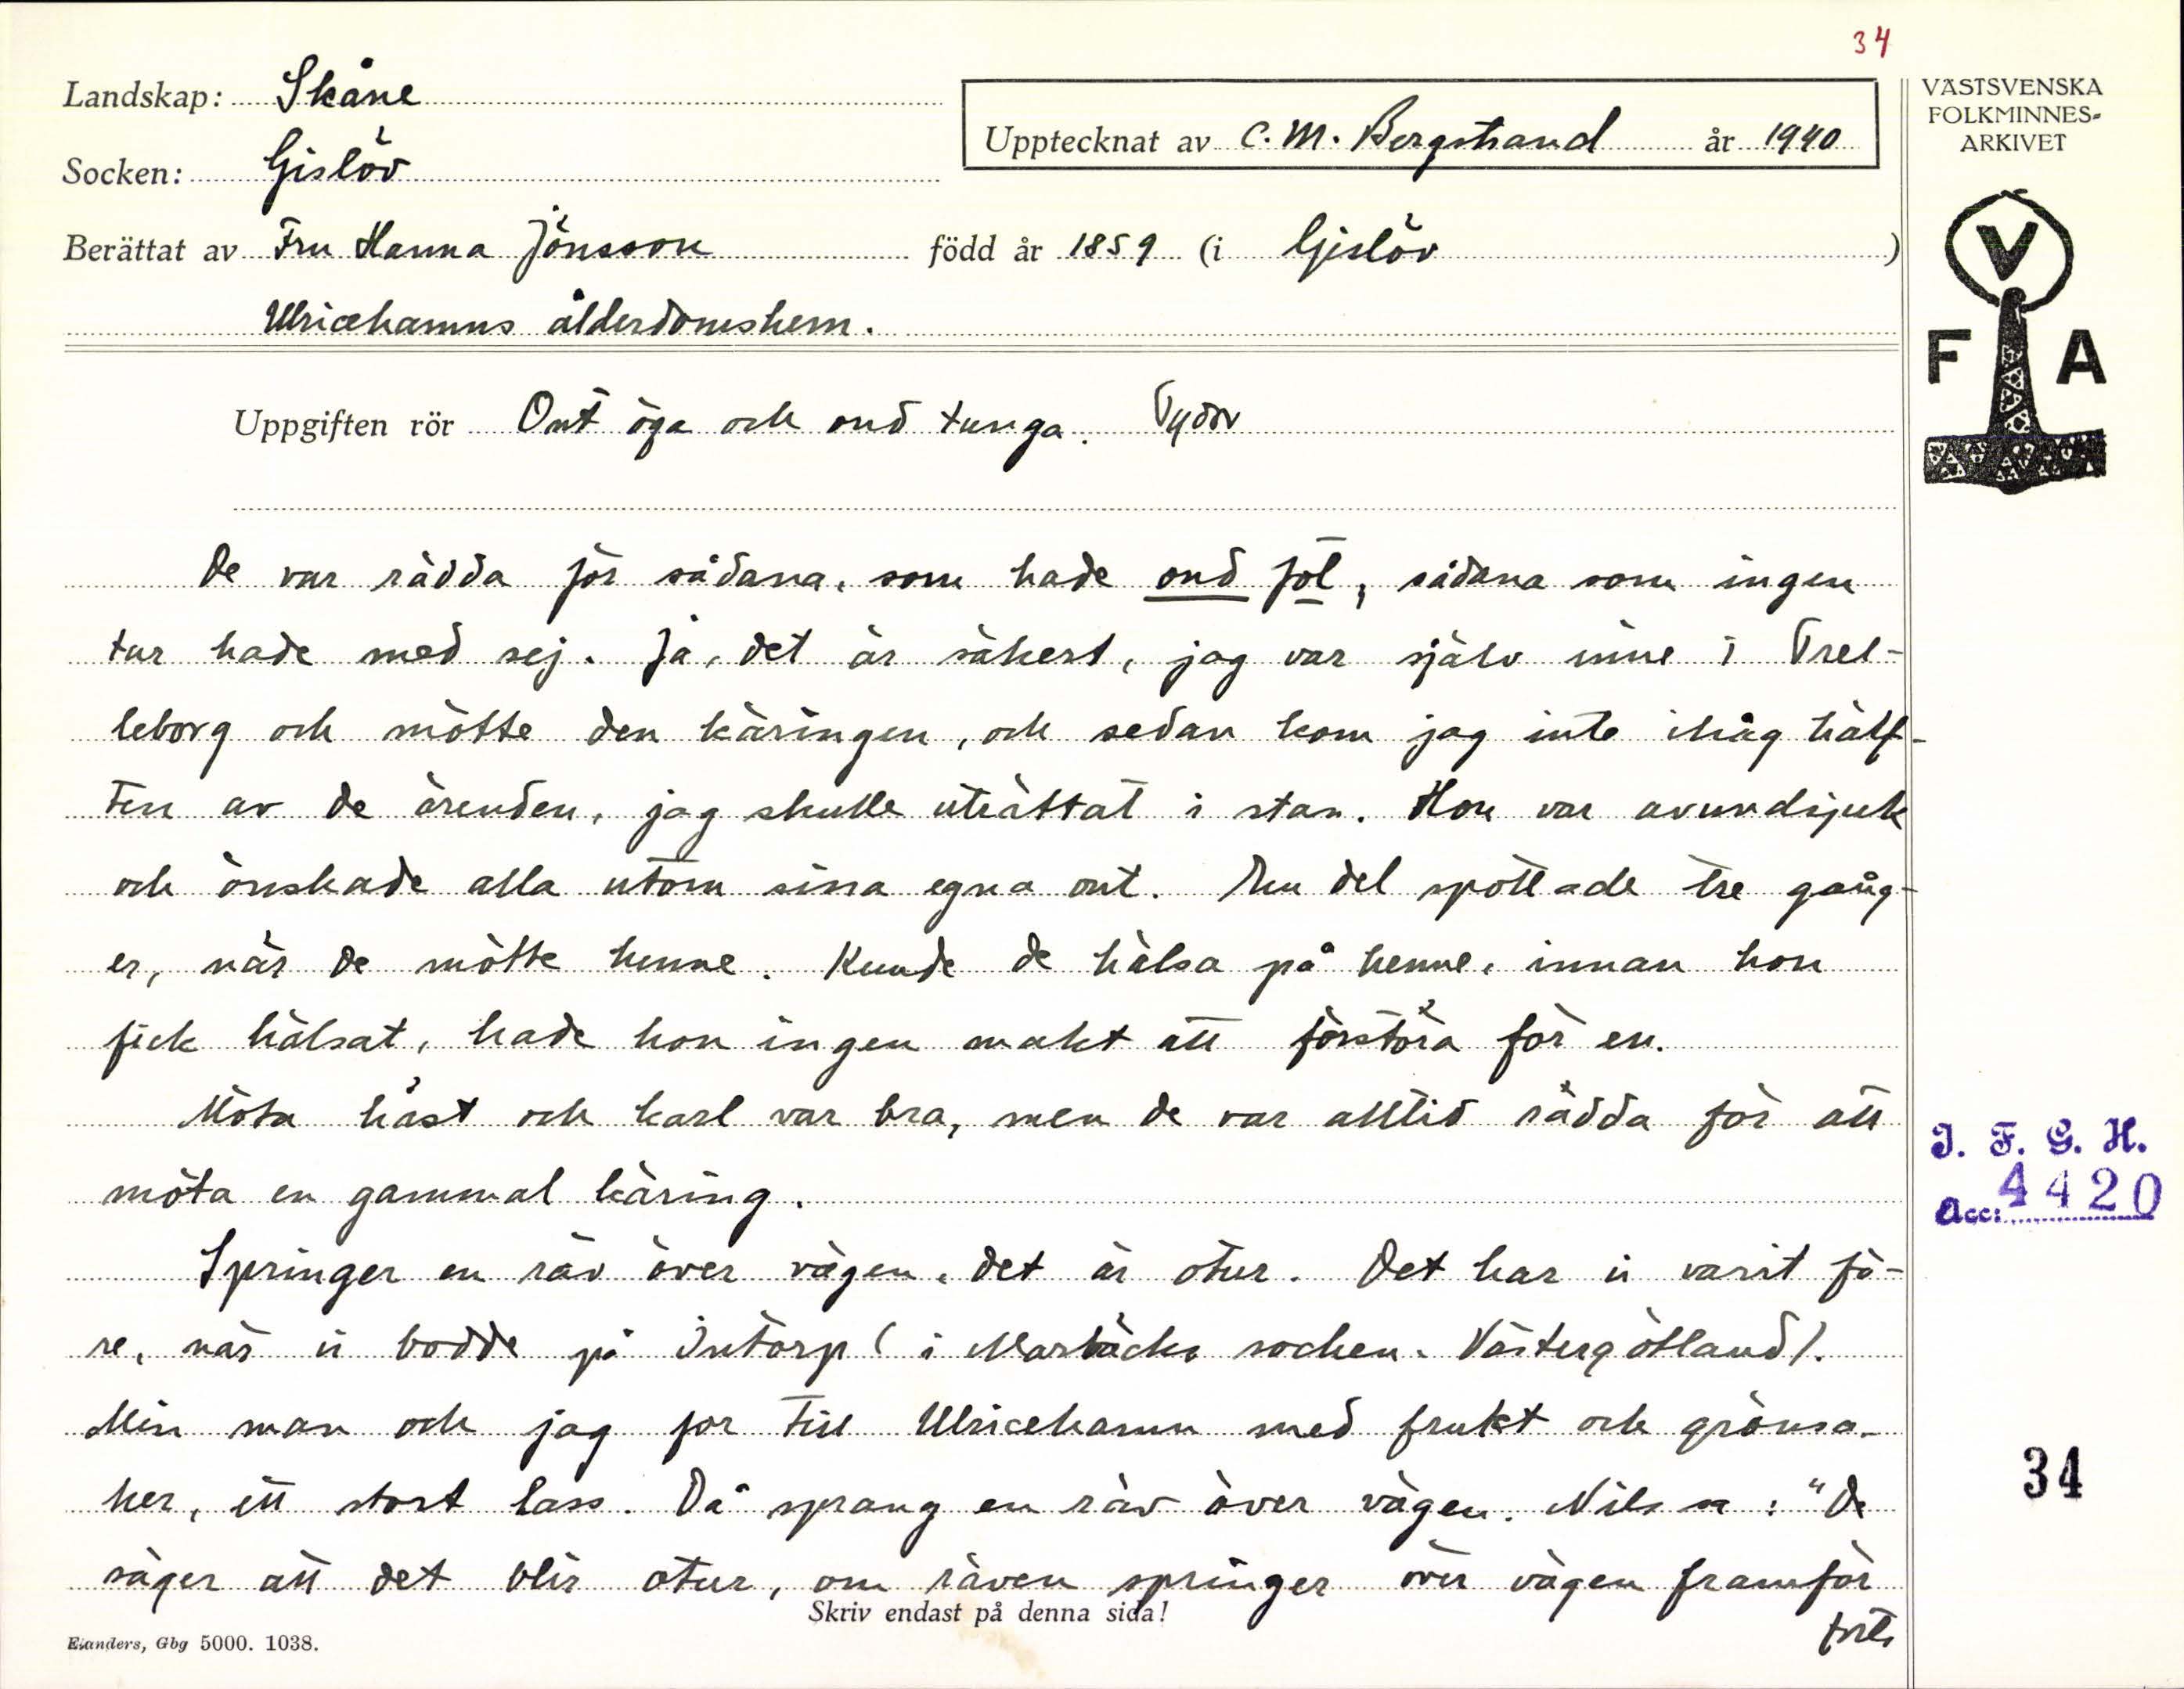 34
Landskap: Skåne
Upptecknat av C. M. Bergstrand år 1940
VÄSTSVENSKA
FOLKMINNES-
ARKIVET
Socken: Gislöv
Berättat av Fru Hanna Jönsson född år 1859 (i Gislöv)
Ulricehamns ålderdomshem.
V
F A
Uppgiften rör Ont öga och ond tunga. Tydor
De var rädda för sådana, som hade ond föl, sådana som ingen
tur hade med sej. Ja, det är säkert, jag var själv inne i Trel-
leborg och mötte den käringen, och sedan kom jag inte ihåg hälf-
ten av de ärenden, jag skulle uträttat i stan. Hon var avundsjuk
och önskade alla utom sina egna ont. En del spottade tre gång-
er, när de mötte henne. Kunde de hälsa på henne, innan hon
fick hälsat, hade hon ingen makt att förstöra för en.
Möta häst och karl var bra, men de var alltid rädda för att
möta en gammal käring.
Springer en räv över vägen, det är otur. Det har vi varit fö-
re, när vi bodde på Intorp (i Marbäcks socken, Västergötland).
Min man och jag for till Ulricehamn med frukt och grönsa-
ker, ett stort lass. Då sprang en räv över vägen. Nils sa: "De
säger att det blir otur, om räven springer över vägen framför
forts
Skriv endast på denna sida!
Elanders, Gbg 5000. 1038.
I. F. G. H.
Acc: 4420
34